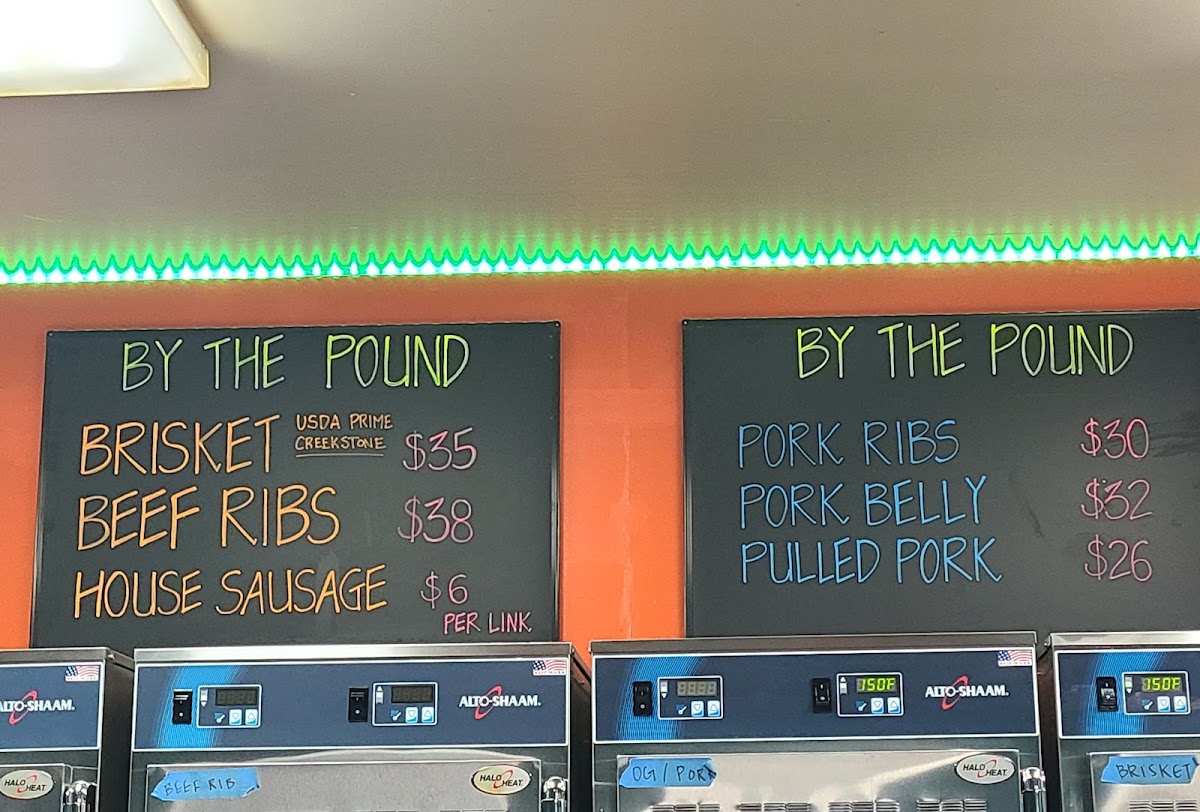 BY THE POUND
BRISKET USDA PRIME CREEKSTONE $35
BEEF RIBS $38
HOUSE SAUSAGE $6
PER LINK
BY THE POUND
PORK RIBS $30
PORK BELLY $32
PULLED PORK $26
ALTO-SHAAM.
ALTO-SHAAM.
150F
ALTO-SHAAM.
150F
HALO HEAT
BEEF RIB
HALO HEAT
OG / PORK
HALO HEAT
BRISKET